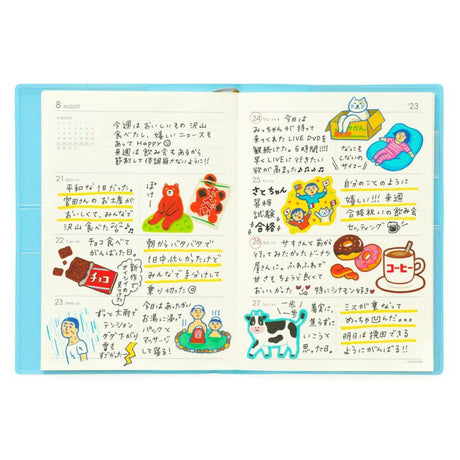 8 AUGUST
今週はおいしいもの沢山
食べたし、嬉しいニュースも
あってHappy
来週は飲み会もあるから
節制して体調崩さないように!!
21
平和な1日だった。
宮田さんのお土産が
おいしくて、みんなで
沢山食べた
ぼけー
22
チョコ食べて
がんばった日。
チョコ
新作で
朝からバタバタで
1日中忙しかったけど
みんなでまわして
乗り切った
23
ずっと大雨で
テンション
ダダ下がり
今日はあたたかい
お湯に浸って
パックと
マッサージ
して寝る!
'23
24
今日は
みっちゃんが持って
来てくれたLIVE DVDを
観続けた。6時間!!!
早くLIVEに行きたい
欲が高まった
みかん
なにも
しないのが
サイコー!
25
さとちゃん
昇格
試験
合格
自分のことのように
嬉しい!!! 来週
合格祝いの飲み会
セッティング
26
サオさんて前から
行ってみたかったドーナツ
屋さんに。ふわふわで
甘さもちょうど良くて
おいしかった
特にシナモン好き!
コーヒー
27
一歩一歩
着実に、
焦らずに
いこうと
思った日。
ミスが重なって
めっちゃ凹んだ…
明日は挽回できる
ようにがんばる!!